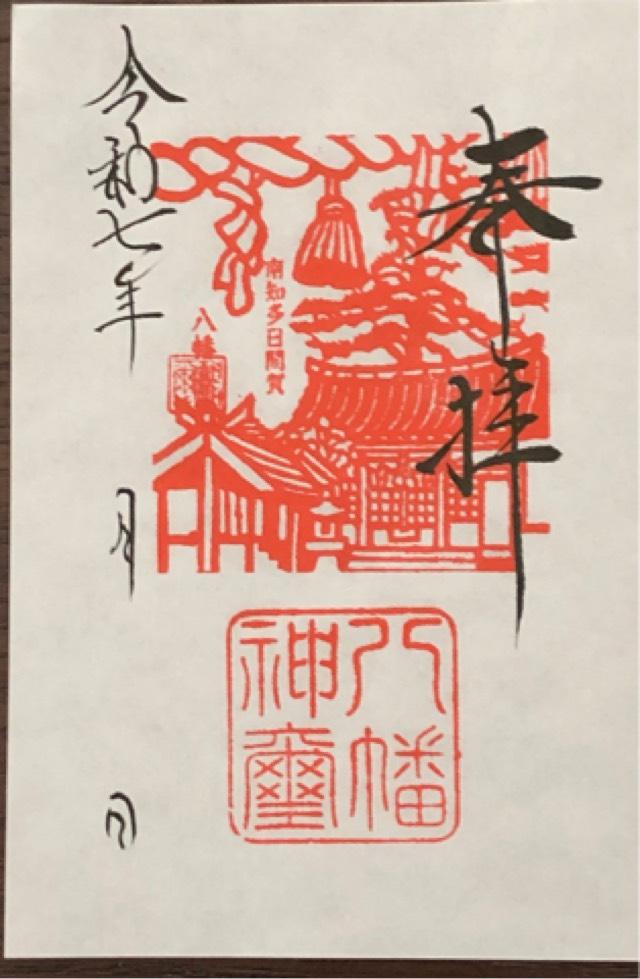 奉拝
南知多日間賀
八幡宮
八幡
神璽
令和七年 月 日